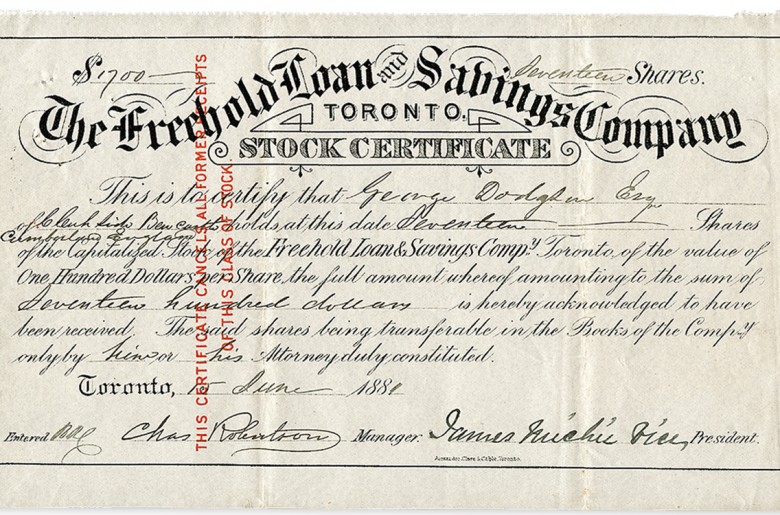 $1700 Seventeen Shares.
The Freehold Loan and Savings Company
TORONTO.
STOCK CERTIFICATE
This is to certify that George Dodgson Esq
of holds at this date Seventeen Shares
Cumberland England
of the Capitalized Stock of the Freehold Loan & Savings Compy Toronto, of the value of
One Hundred Dollars per Share, the full amount whereof amounting to the sum of
Seventeen hundred dollars is hereby acknowledged to have
been received. The said shares being transferable in the Books of the Compy
only by him or his Attorney duly constituted.
Toronto, 15 June 1881
Entered Chas Robertson Manager. James Michie Vice, President.
Alexander, Clare & Cable, Toronto.
THIS CERTIFICATE CANCELS ALL FORMER RECEIPTS
OF THIS CLASS OF STOCK.